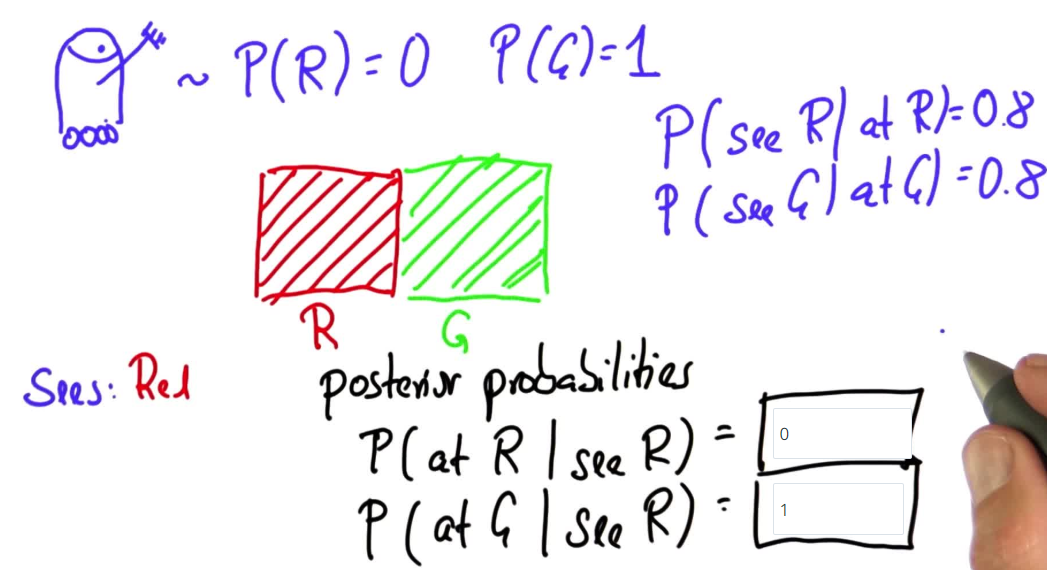 ~ P(R) = 0 P(G) = 1
P(see R | at R) = 0.8
P(see G | at G) = 0.8
R G
Sees: Red
posterior probabilities
P(at R | see R) = 0
P(at G | see R) = 1